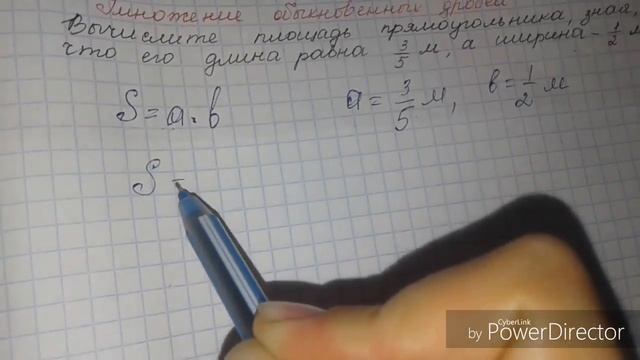 Умножение обыкновенных дробей
Вычислите площадь прямоугольника, зная,
что его длина равна 3/5 м, а ширина - 1/2 м
S = a · b a = 3/5 м, b = 1/2 м
S =
CyberLink
by PowerDirector